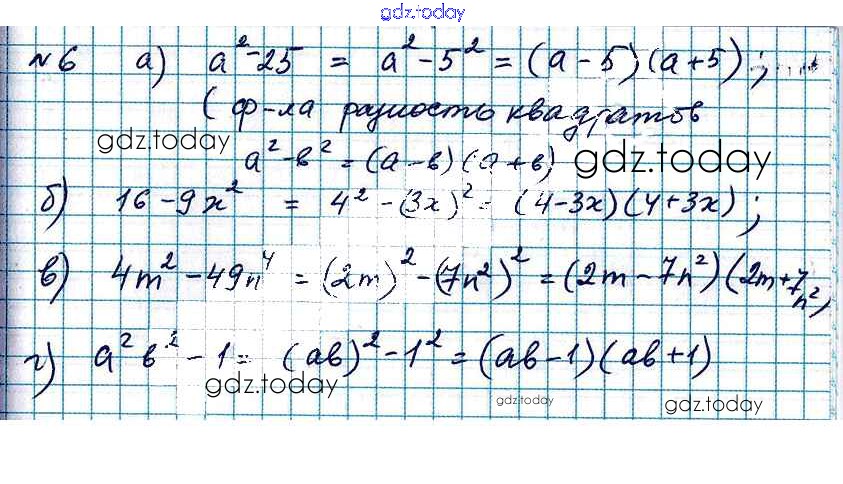 gdz.today
№6 а) a² - 25 = a² - 5² = (a - 5)(a + 5);
(ф-ла разность квадратов
gdz.today
a² - в² = (a - в)(a + в) gdz.today
б) 16 - 9x² = 4² - (3x)² = (4 - 3x)(4 + 3x);
в) 4m² - 49n⁴ = (2m)² - (7n²)² = (2m - 7n²)(2m + 7n²)
г) a²в² - 1 = (aв)² - 1² = (aв - 1)(aв + 1)
gdz.today
gdz.today
gdz.today